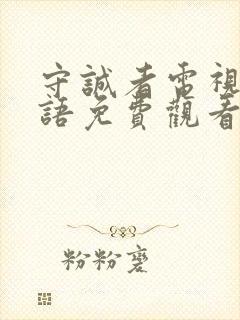 守誠者電視
語免費觀看
粉粉寞